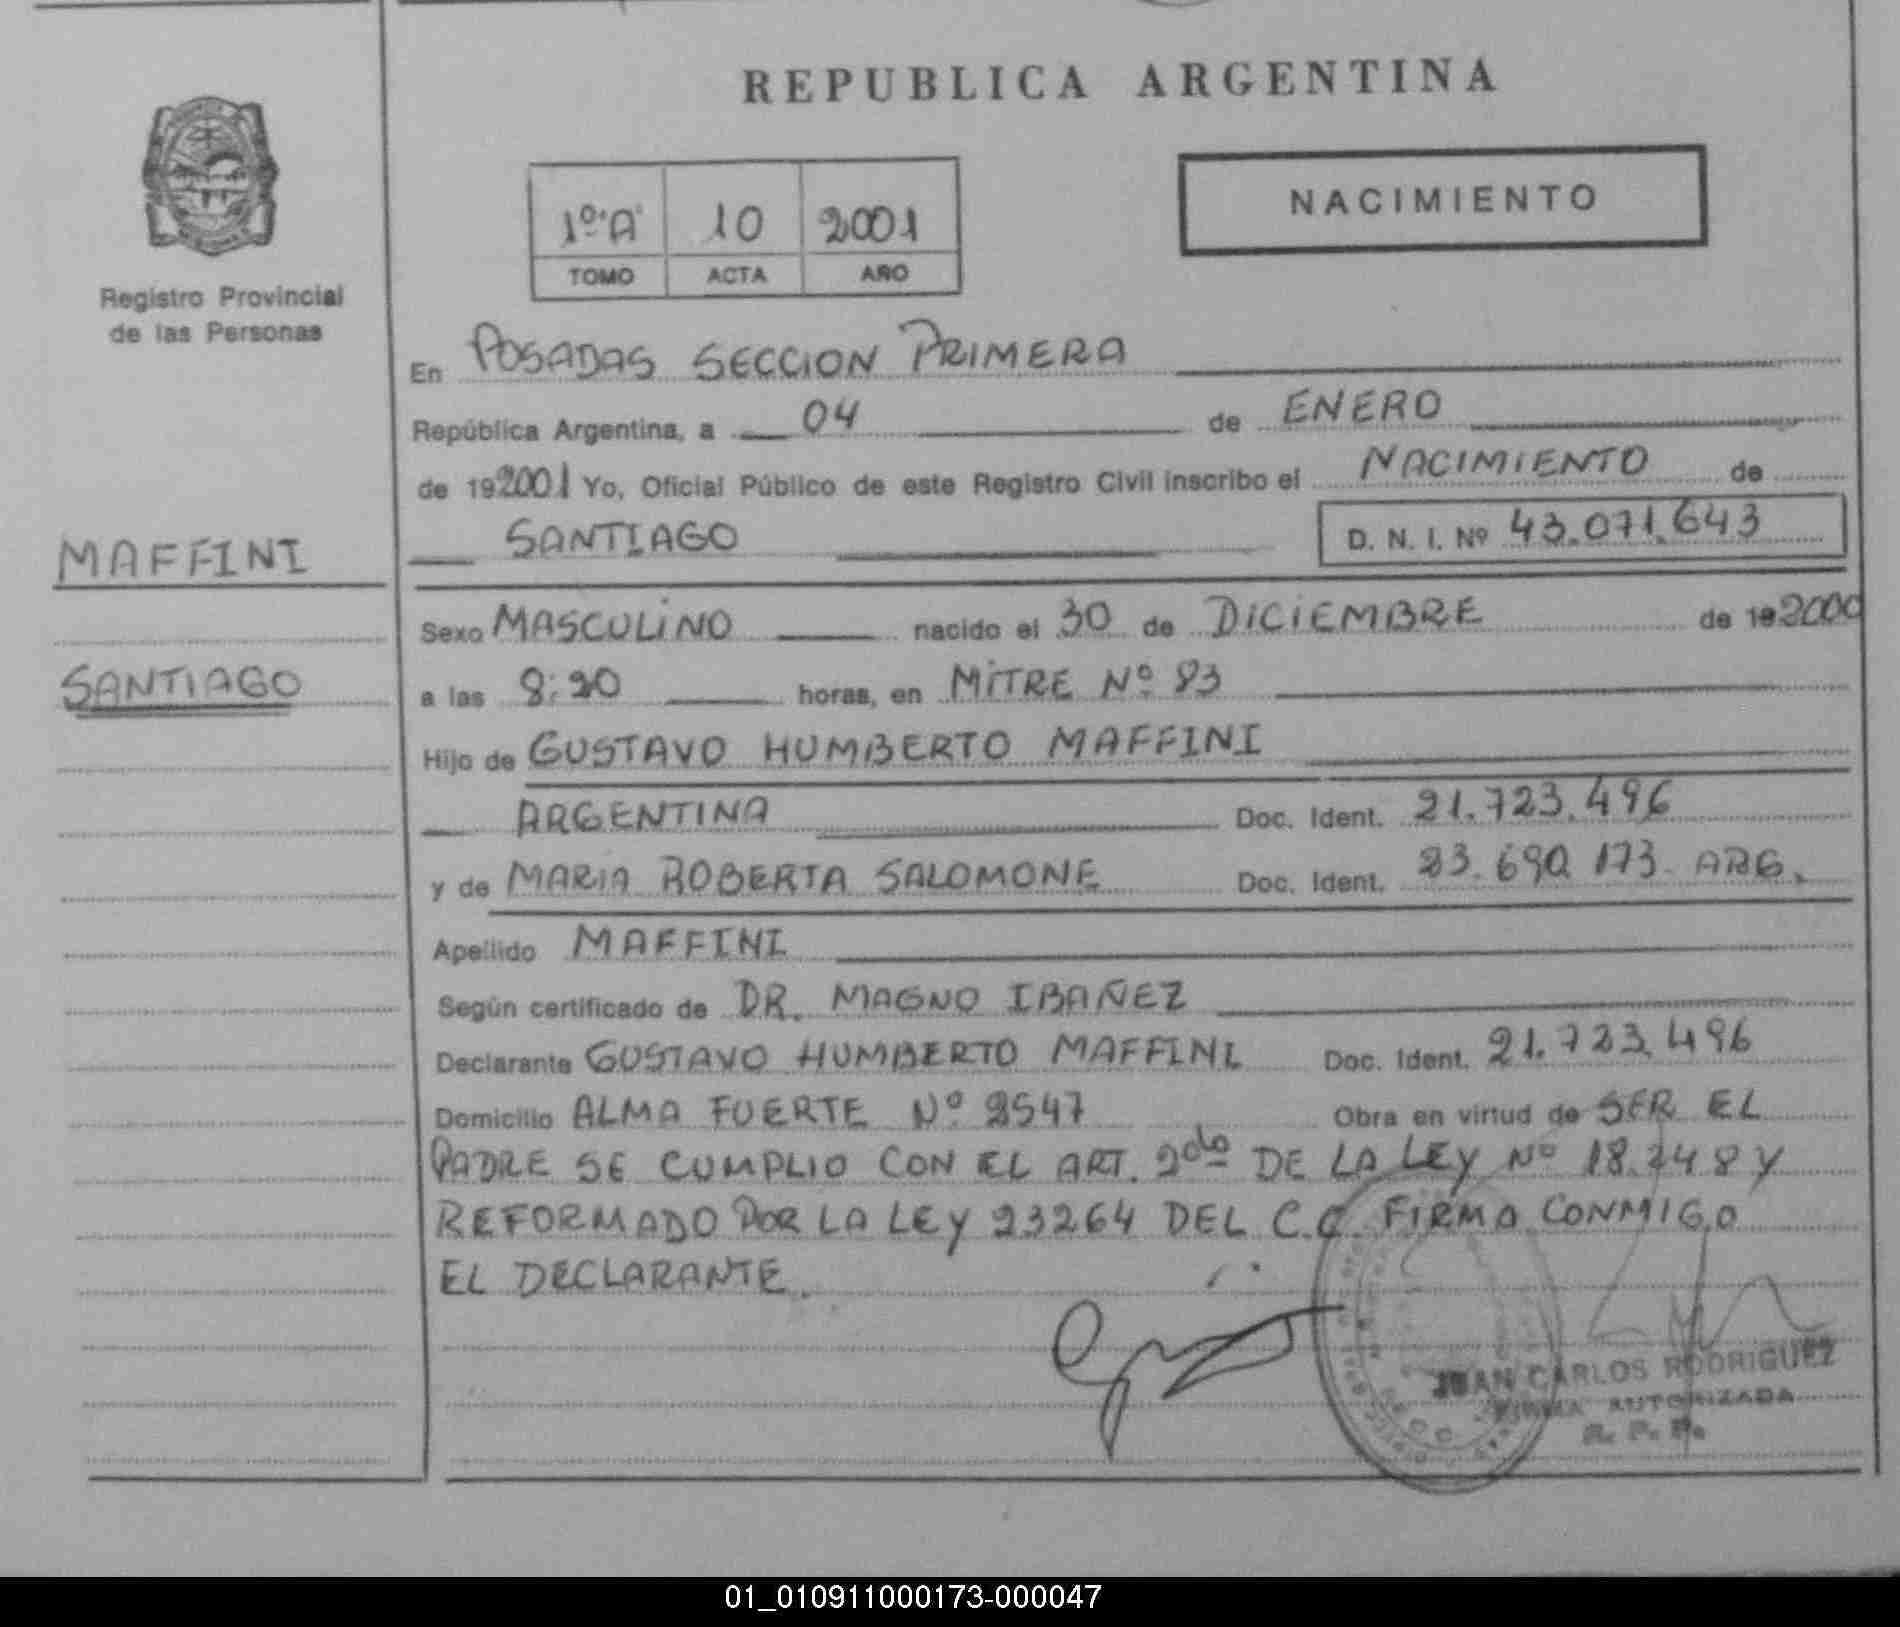 REPUBLICA ARGENTINA
NACIMIENTO
1º"A" 10 2001
TOMO ACTA AÑO
Registro Provincial
de las Personas
En POSADAS SECCION PRIMERA
República Argentina, a 04 de ENERO
de 192001 Yo, Oficial Público de este Registro Civil inscribo el NACIMIENTO de
SANTIAGO D. N. I. Nº 43.071.643
MAFFINI
Sexo MASCULINO nacido el 30 de DICIEMBRE de 192000
SANTIAGO
a las 8:20 horas, en MITRE Nº 83
Hijo de GUSTAVO HUMBERTO MAFFINI
ARGENTINA Doc. Ident. 21.723.496
y de MARIA ROBERTA SALOMONE Doc. Ident. 23.690.173. ARG.
Apellido MAFFINI
Según certificado de DR. MAGNO IBAÑEZ
Declarante GUSTAVO HUMBERTO MAFFINI Doc. Ident. 21.723.496
Domicilio ALMA FUERTE Nº 2547 Obra en virtud de SER EL
PADRE SE CUMPLIO CON EL ART. 2do DE LA LEY Nº 18.248 Y
REFORMADO POR LA LEY 23264 DEL C.C. FIRMA CONMIGO
EL DECLARANTE.
JUAN CARLOS RODRIGUEZ
FIRMA AUTORIZADA
R. P. P.
01_010911000173-000047